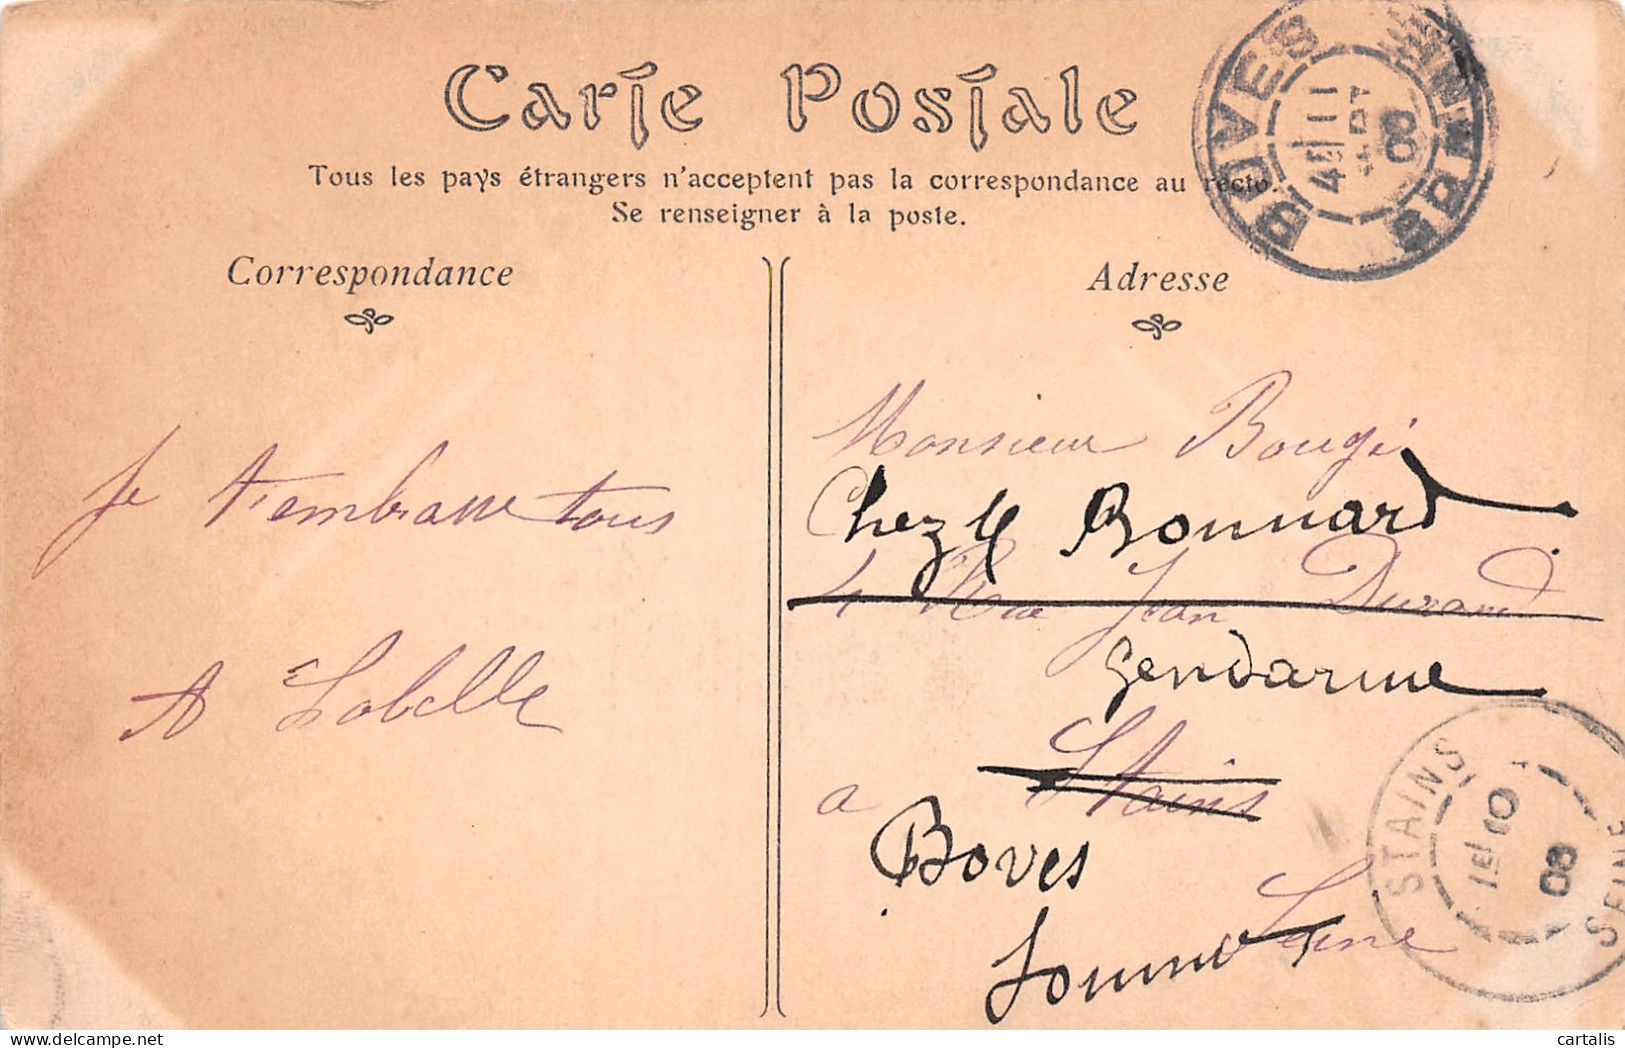 Carte Postale
Tous les pays étrangers n'acceptent pas la correspondance au recto.
Se renseigner à la poste.
Correspondance
Adresse
Je t'embrasse tous
A Labelle
Monsieur Bougi
Chez M Bonnard
4 Rue Jean Durand
Gendarme
a Stains
Boves
Somme
Seine
BOVES
11
08
STAINS
10
08
SEINE
cartalis